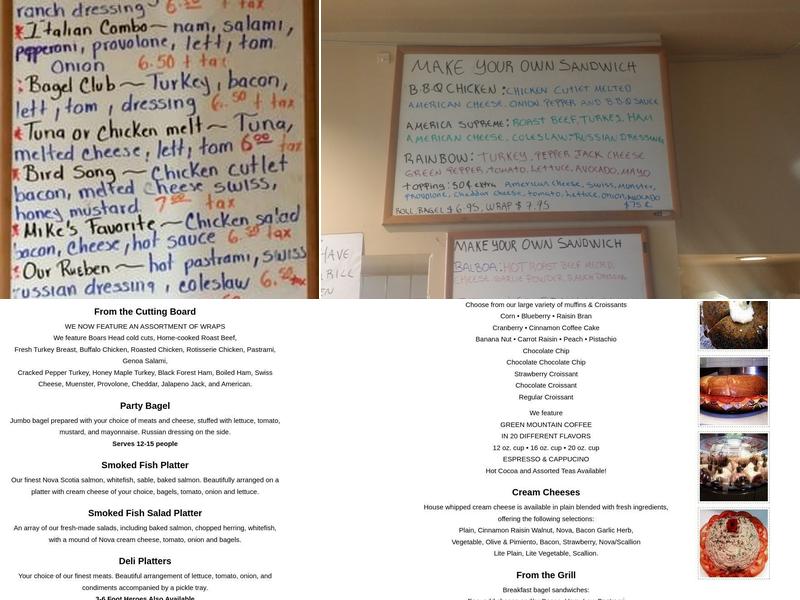 ranch dressing 6.50 + tax
*Italian Combo~ nam, salami,
pepperoni, provolone, lett, tom
Onion 6.50 + tax
Bagel Club~ Turkey, bacon,
lett, tom, dressing 6.50 + tax
*Tuna or Chicken melt~ Tuna,
melted cheese, lett, tom 6.00 tax
*Bird Song~ Chicken cutlet
bacon, melted cheese swiss,
honey mustard. tax
*Mike's Favorite~ Chicken salad
bacon, cheese, hot sauce tax
*Our Rueben~ hot pastrami, swiss
russian dressing, coleslaw 6.50
MAKE YOUR OWN SANDWICH
B.B.Q CHICKEN: CHICKEN CUTLET MELTED
AMERICAN CHEESE. ONION PEPPER AND B.B.Q SAUCE
AMERICA SUPREME: ROAST BEEF, TURKEY, HAM
AMERICAN CHEESE, COLESLAW, RUSSIAN DRESSING
RAINBOW: TURKEY, PEPPER JACK CHEESE
GREEN PEPPER, TOMATO, LETTUCE, AVOCADO, MAYO
topping: 50¢ extra American cheese, Swiss, Munster,
provolone, cheddar cheese, tomato, lettuce, onion, AVOCADO
ROLL, BAGEL $ 6.95, WRAP $ 7.95
MAKE YOUR OWN SANDWICH
BALBOA: HOT ROAST BEEF
CHEESE GARLIC POWDER, RANCH DRESSING
HAVE
From the Cutting Board
WE NOW FEATURE AN ASSORTMENT OF WRAPS
We feature Boars Head cold cuts, Home-cooked Roast Beef,
Fresh Turkey Breast, Buffalo Chicken, Roasted Chicken, Rotisserie Chicken, Pastrami,
Genoa Salami,
Cracked Pepper Turkey, Honey Maple Turkey, Black Forest Ham, Boiled Ham, Swiss
Cheese, Muenster, Provolone, Cheddar, Jalapeno Jack, and American.
Party Bagel
Jumbo bagel prepared with your choice of meats and cheese, stuffed with lettuce, tomato,
mustard, and mayonnaise. Russian dressing on the side.
Serves 12-15 people
Smoked Fish Platter
Our finest Nova Scotia salmon, whitefish, sable, baked salmon. Beautifully arranged on a
platter with cream cheese of your choice, bagels, tomato, onion and lettuce.
Smoked Fish Salad Platter
An array of our fresh-made salads, including baked salmon, chopped herring, whitefish,
with a mound of Nova cream cheese, tomato, onion and bagels.
Deli Platters
Your choice of our finest meats. Beautiful arrangement of lettuce, tomato, onion, and
condiments accompanied by a pickle tray.
3-6 Foot Heroes Also Available
Choose from our large variety of muffins & Croissants
Corn • Blueberry • Raisin Bran
Cranberry • Cinnamon Coffee Cake
Banana Nut • Carrot Raisin • Peach • Pistachio
Chocolate Chip
Chocolate Chocolate Chip
Strawberry Croissant
Chocolate Croissant
Regular Croissant
We feature
GREEN MOUNTAIN COFFEE
IN 20 DIFFERENT FLAVORS
12 oz. cup • 16 oz. cup • 20 oz. cup
ESPRESSO & CAPPUCINO
Hot Cocoa and Assorted Teas Available!
Cream Cheeses
House whipped cream cheese is available in plain blended with fresh ingredients,
offering the following selections:
Plain, Cinnamon Raisin Walnut, Nova, Bacon Garlic Herb,
Vegetable, Olive & Pimiento, Bacon, Strawberry, Nova/Scallion
Lite Plain, Lite Vegetable, Scallion.
From the Grill
Breakfast bagel sandwiches: